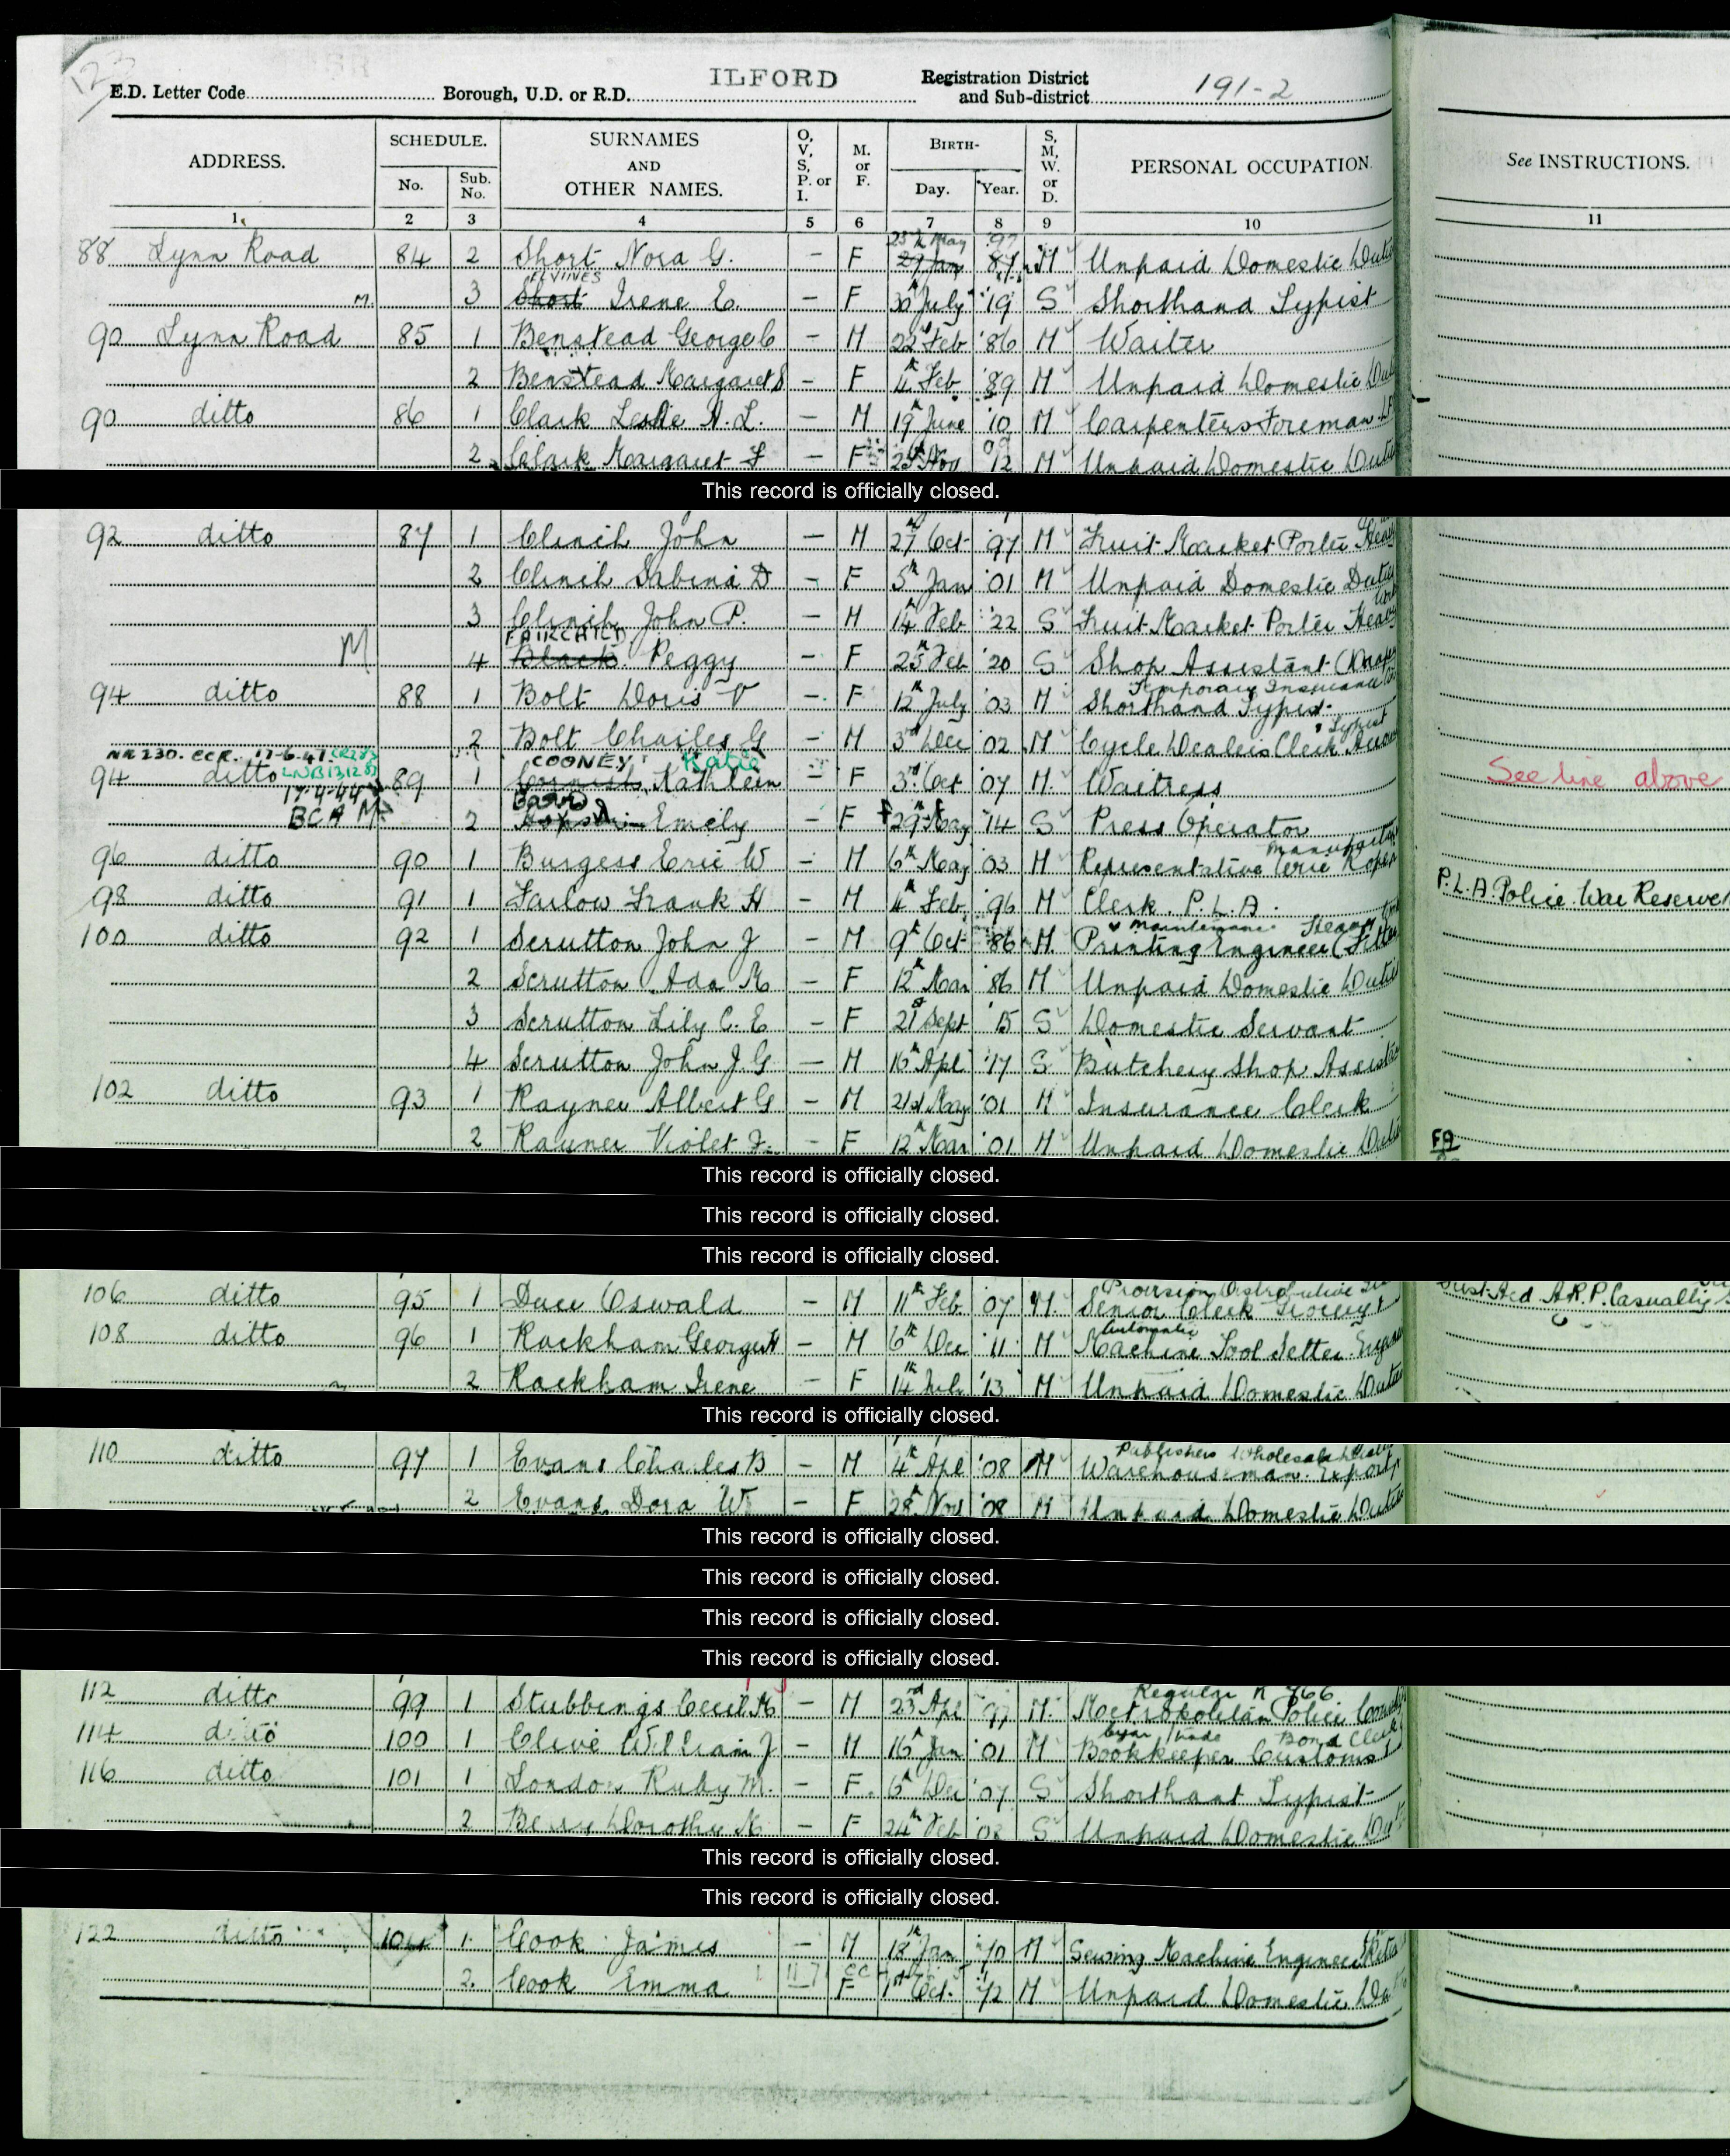 123
E.D. Letter Code Borough, U.D. or R.D. ILFORD Registration District and Sub-district 191-2
ADDRESS. SCHEDULE. No. Sub. No. SURNAMES AND OTHER NAMES. O, V, S, P. or I. M. or F. BIRTH- Day. Year. S, M, W. or D. PERSONAL OCCUPATION. See INSTRUCTIONS.
1 2 3 4 5 6 7 8 9 10 11
25th May 97
88 Lynn Road 84 2 Short Nora G. – F 27 Jan 87 M Unpaid Domestic Duties
ELVINES
M. 3 Short Irene E. – F 30 July '19 S Shorthand Typist
90 Lynn Road 85 1 Benstead George C – M 22 Feb '86 M Waiter
2 Benstead Margaret S – F 4th Feb '89 M Unpaid Domestic Dut
90 ditto 86 1 Clark Leslie A. L. – M 19th June '10 M Carpenters Foreman
09
2 Clark Margaret F – F 25 Nov '12 M Unpaid Domestic Duti
This record is officially closed.
92 ditto 87 1 Clinch John – M 27th Oct '97 M Fruit Market Porter Heavy
2 Clinch Sabina D – F 5th Jan '01 M Unpaid Domestic Duties
3 Clinch John P. – M 14th Feb '22 S Fruit Market Porter Heavy
FAIRCHILD
M 4 Black Peggy – F 25th Feb '20 S Shop Assistant (Drap
94 ditto 88 1 Bolt Doris V – F 12th July '03 M Temporary Insurance
Shorthand Typist
Typist
2 Bolt Charles G – M 3rd Dec '02 M Cycle Dealers Clerk
NR230. ECR. 17-6-47
COONEY Katie
94 ditto 89 1 Cornish Kathleen – F 3rd Oct '07 M. Waitress See line above
17-4-44
BCA M 2 Emily – F 29th May '14 S Press Operator
96 ditto 90 1 Burgess Eric W – M 6th May '03 M Representative Wire Ropes
98 ditto 91 1 Farlow Frank H – M 4th Feb '96 M Clerk. P.L.A. P.L.A. Police War Reserve
Maintenance Heavy
100 ditto 92 1 Scrutton John J – M 9th Oct '86 M. Printing Engineer (Fitter
2 Scrutton Ada M – F 12th Mar '86 M Unpaid Domestic Duties
3 Scrutton Lily C. E – F 21st Sept '15 S Domestic Servant
4 Scrutton John J G – M 16th Apl '17 S Butchery Shop Assist
102 ditto 93 1 Rayner Albert G – M 21st May '01 M Insurance Clerk
2 Rayner Violet F. – F 12th Mar '01 M Unpaid Domestic Duti FA
This record is officially closed.
This record is officially closed.
This record is officially closed.
Provision Distributive
106 ditto 95 1 Duce Oswald – M 11th Feb '07 M. Senior Clerk Grocery & First Aid A.R.P. Casualty S
Automatic
108 ditto 96 1 Rackham George H – M 6th Dec '11 M Machine Tool Setter
2 Rackham Irene – F 14th July '13 M Unpaid Domestic Duties
This record is officially closed.
Publishers Wholesale
110 ditto 97 1 Evans Charles B – M 4th Apl '08 M Warehouseman. Export
2 Evans Dora W – F 28th Nov '08 M Unpaid Domestic Duties
This record is officially closed.
This record is officially closed.
This record is officially closed.
This record is officially closed.
Regular R 766
112 ditto 99 1 Stubbings Cecil M – M 23rd Apl '97 M. Metropolitan Police
Bond Clerk
114 ditto 100 1 Clive William J – M 16th Jan '01 M Bookkeeper Customs
116 ditto 101 1 London Ruby M. – F. 6th Dec '07 S Shorthant Typist
2 Dorothy M. – F 24th Feb '08 S Unpaid Domestic Dut
This record is officially closed.
This record is officially closed.
122 ditto 104 1. Cook James – M 18th Jan '70 M Sewing Machine Engineer
2. Cook Emma – F 1st Oct. '72 M Unpaid Domestic Du